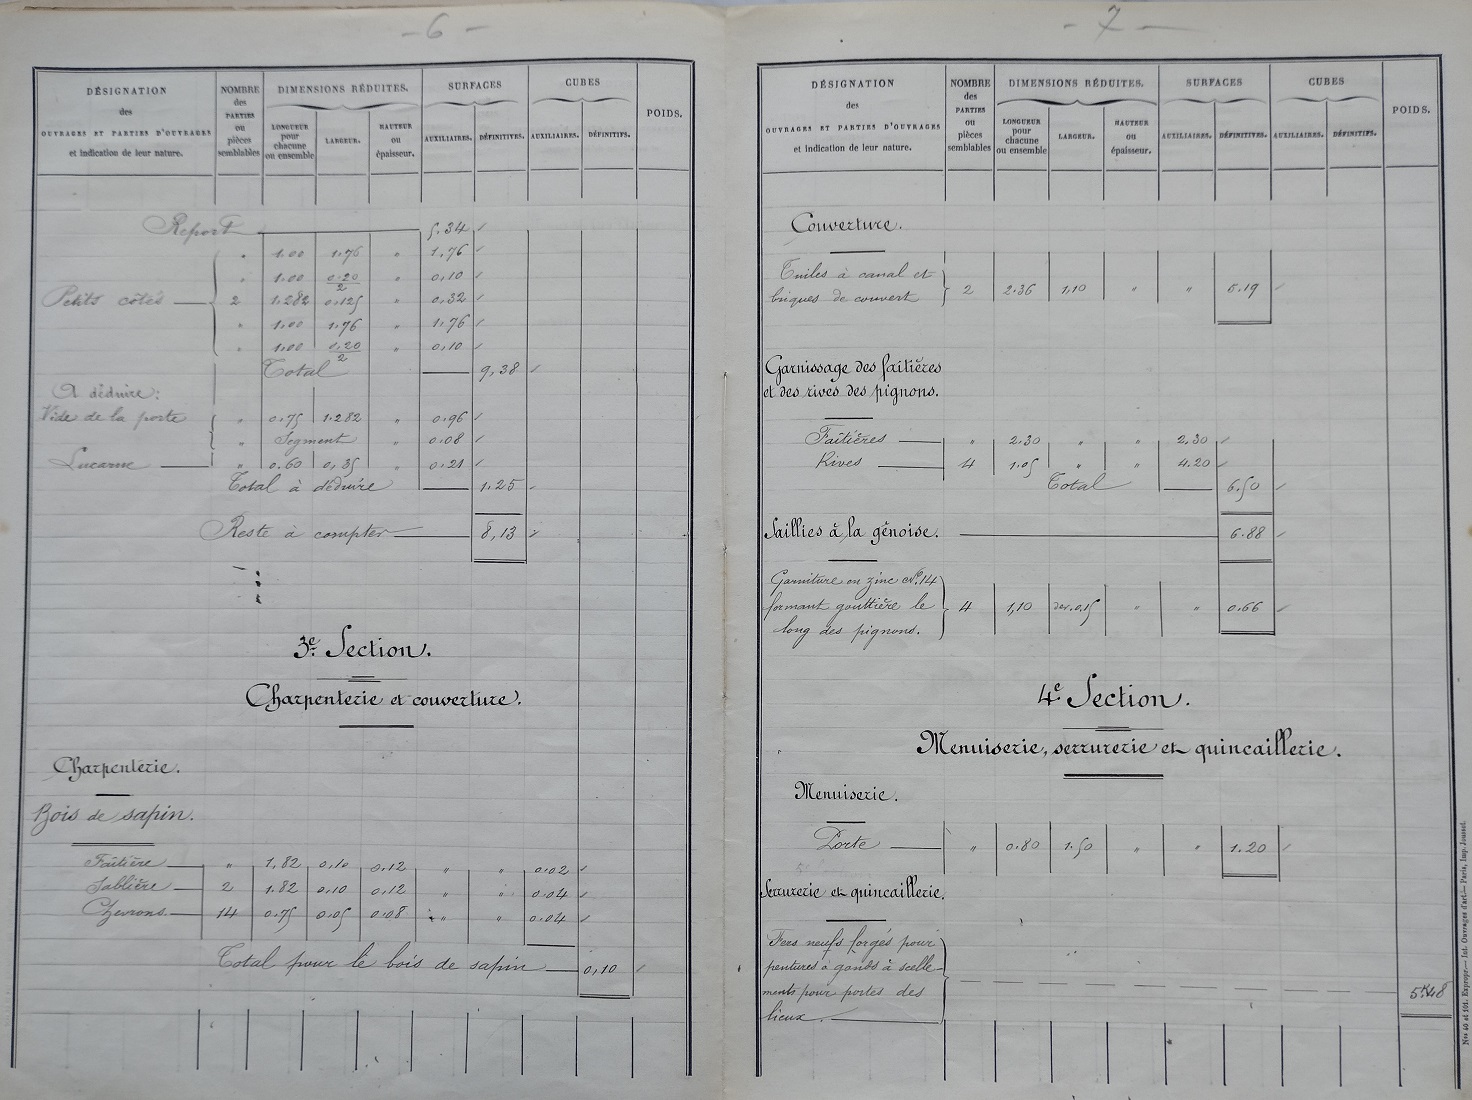 - 6 -
DÉSIGNATION
des
OUVRAGES ET PARTIES D'OUVRAGES
et indication de leur nature.
NOMBRE
des
PARTIES
ou
pièces
semblables
DIMENSIONS RÉDUITES.
LONGUEUR
pour
chacune
ou ensemble
LARGEUR.
HAUTEUR
ou
épaisseur.
SURFACES
AUXILIAIRES.
DÉFINITIVES.
CUBES
AUXILIAIRES.
DÉFINITIFS.
POIDS.
Report 5.34
" 1.00 1.76 " 1.76
" 1.00 0.20/2 " 0.10
Petits côtés 2 1.282 0.125 " 0.32
" 1.00 1.76 " 1.76
" 1.00 0.20/2 " 0.10
Total 9,38
A déduire:
Vide de la porte " 0.75 1.282 " 0.96
" Segment " 0.08
Lucarne " 0.60 0,35 " 0.21
Total à déduire 1.25
Reste à compter 8,13
3e Section.
Charpenterie et couverture.
Charpenterie.
Bois de sapin.
Faîtière " 1.82 0.10 0.12 " " 0.02
Sablière 2 1.82 0.10 0,12 " " 0.04
Chevrons 14 0.75 0.05 0.08 " " 0.04
Total pour le bois de sapin 0,10
- 7 -
DÉSIGNATION
des
OUVRAGES ET PARTIES D'OUVRAGES
et indication de leur nature.
NOMBRE
des
PARTIES
ou
pièces
semblables
DIMENSIONS RÉDUITES.
LONGUEUR
pour
chacune
ou ensemble
LARGEUR.
HAUTEUR
ou
épaisseur.
SURFACES
AUXILIAIRES.
DÉFINITIVES.
CUBES
AUXILIAIRES.
DÉFINITIFS.
POIDS.
Couverture.
Tuiles à canal et
briques de couvert 2 2.36 1,10 " " 5.19
Garnissage des faîtières
et des rives des pignons.
Faîtières " 2.30 " " 2.30
Rives 4 1.05 " " 4.20
Total 6.50
Saillies à la génoise. 6.88
Garniture en zinc No. 14
formant gouttière le 4 1,10 dév. 0.15 " " 0.66
long des pignons.
4e Section.
Menuiserie, serrurerie et quincaillerie.
Menuiserie.
Porte " 0.80 1.50 " " 1.20
Serrurerie et quincaillerie.
Fers neufs forgés pour
pentures à gonds à scelle-
ments pour portes des 5k48
lieux.
Nos 40 et 101. Expropr.— Int. Ouvrages d'art.— Paris, Imp. Jousset.